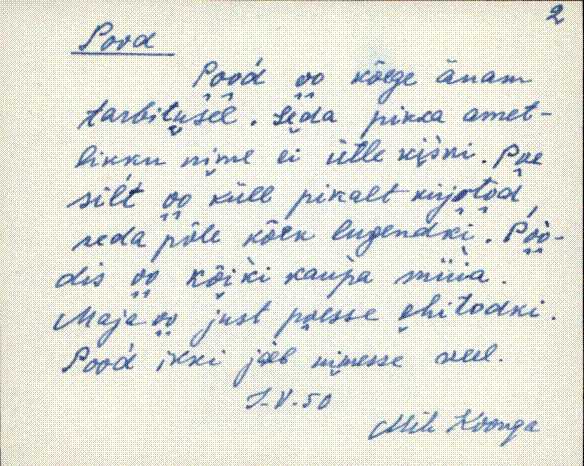 2
Pood
Pood oo kõege änam
tarbitusel. Seda pikka amet-
likku nime ei ütle kiski. Poe
silt oo küll pikalt kirjotod,
seda põle kõek lugendki. Poo-
dis oo kõiki kaupa müia.
Maja oo just poesse ehitodki.
Pood ikki jääb nimesse veel.
I-V-50
Mihkli Koonga